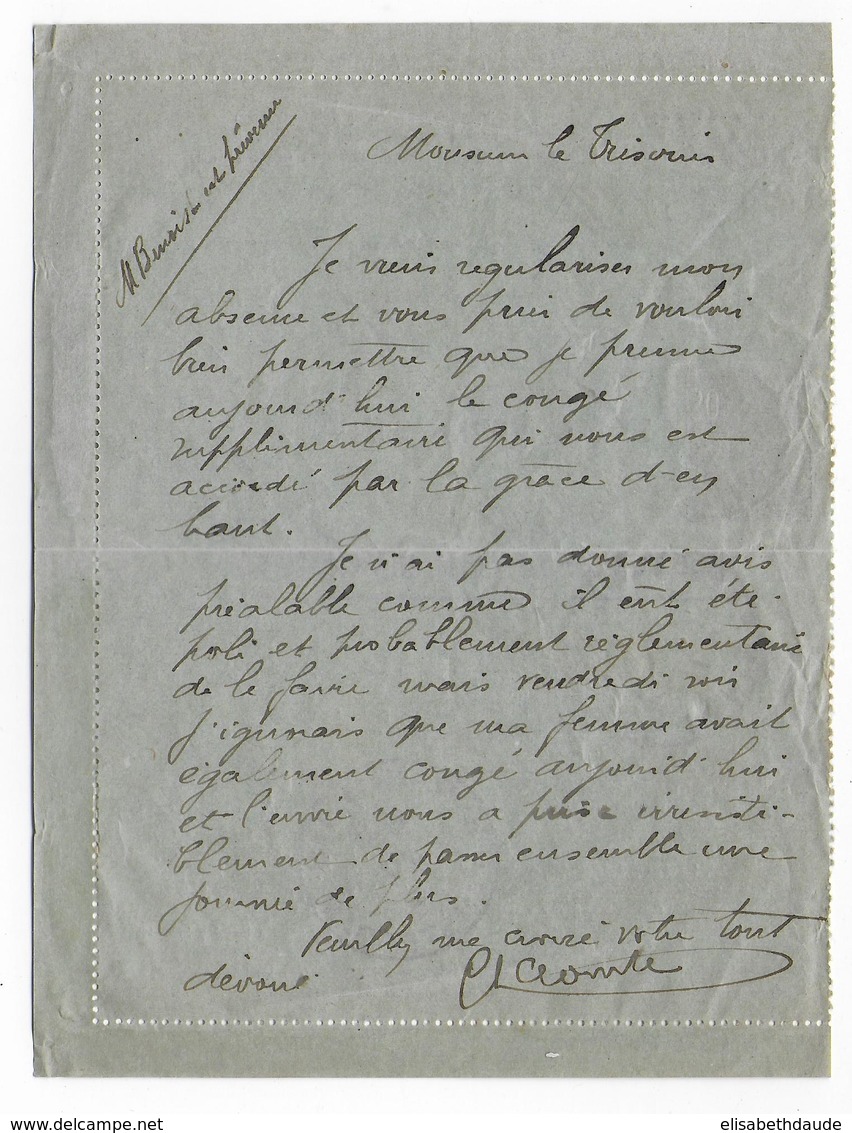 M Benoist est prévenu
Monsieur le Trésorier
Je viens regulariser mon
absence et vous prier de vouloir
bien permettre que je prenne
aujourd'hui le congé
supplémentaire qui nous est
accordé par la grâce d'en
haut.
Je n'ai pas donné avis
préalable comme il eût été
poli et probablement réglementaire
de le faire mais vendredi soir
j'ignorais que ma femme avait
également congé aujourd'hui
et l'envie nous a prise irrésisti-
blement de passer ensemble une
journée de plus.
Veuillez me croire votre tout
dévoué
Lecomte
elisabethdaude
delcampe.net